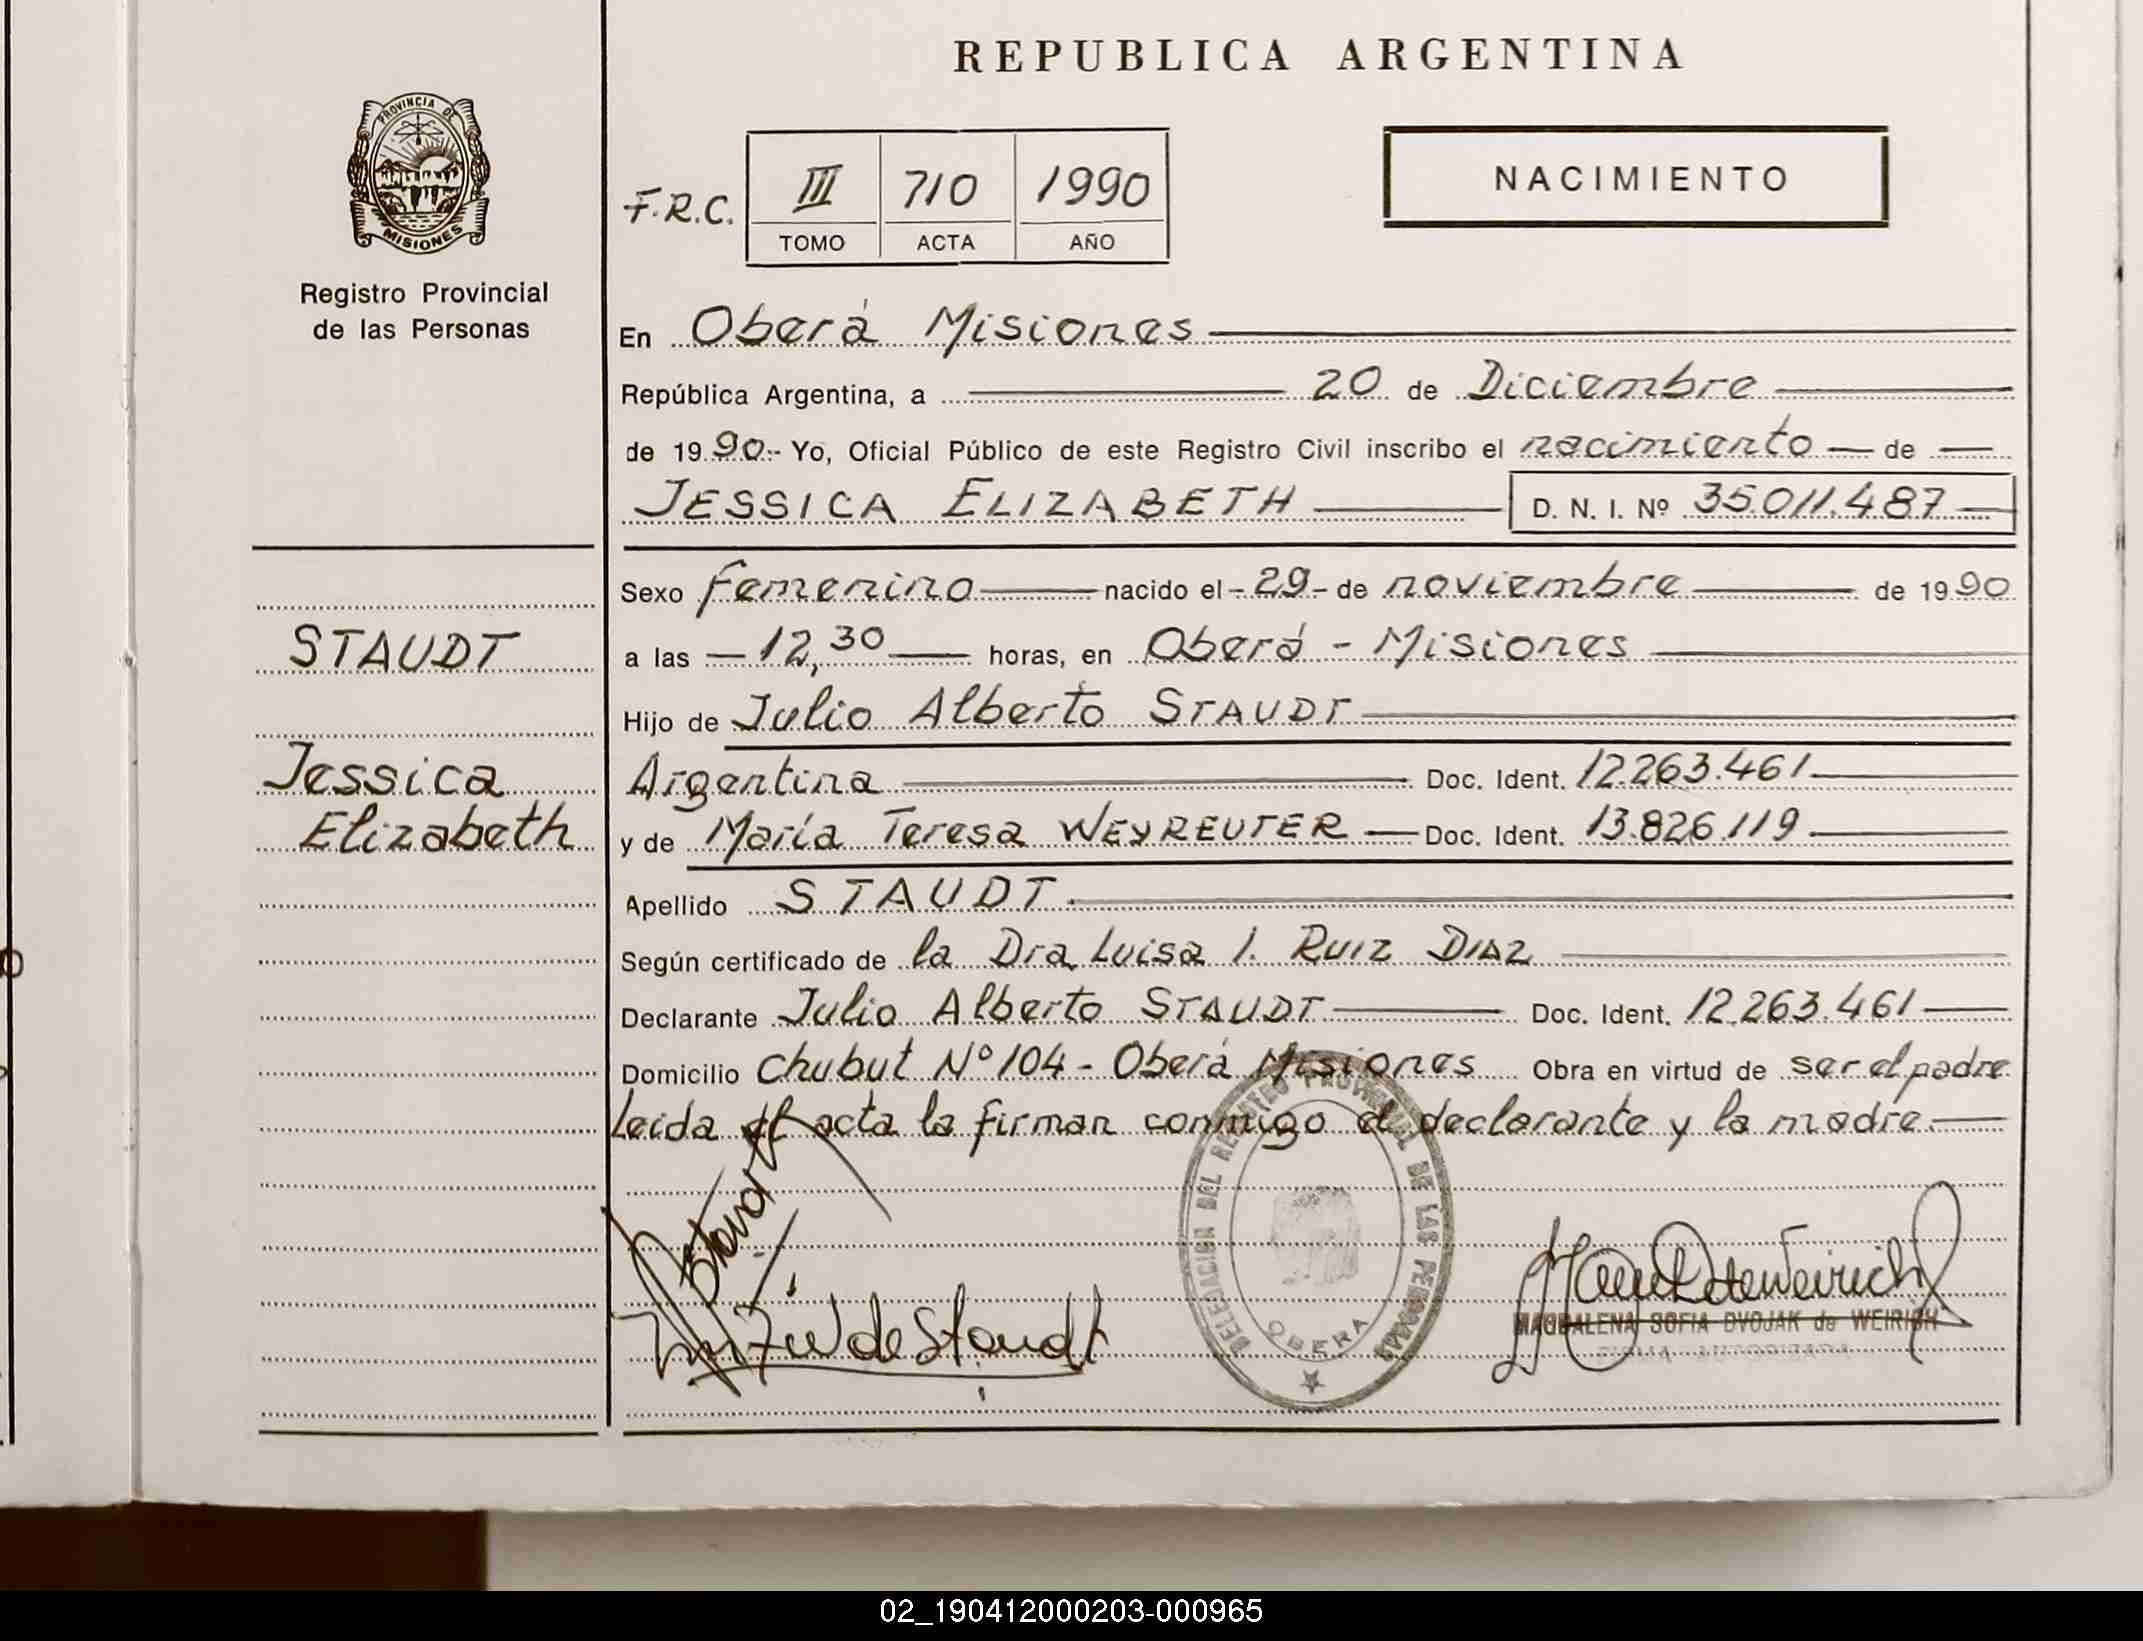 REPUBLICA ARGENTINA
PROVINCIA DE
MISIONES
Registro Provincial
de las Personas
F.R.C. III 710 1990
TOMO ACTA AÑO
NACIMIENTO
En Oberá Misiones
República Argentina, a 20 de Diciembre
de 1990.- Yo, Oficial Público de este Registro Civil inscribo el nacimiento — de —
JESSICA ELIZABETH D. N. I. Nº 35.011.487
Sexo femenino nacido el - 29 - de noviembre de 1990
a las — 12,30 — horas, en Oberá - Misiones
Hijo de Julio Alberto STAUDT
Argentina Doc. Ident. 12.263.461
y de María Teresa WEYREUTER — Doc. Ident. 13.826.119
Apellido STAUDT.
Según certificado de la Dra. Luisa I. RUIZ DIAZ
Declarante Julio Alberto STAUDT Doc. Ident. 12.263.461
Domicilio Chubut Nº 104 - Oberá Misiones Obra en virtud de ser el padre
Leida el acta la firman conmigo el declarante y la madre.
STAUDT
Jessica
Elizabeth
de Staudt
DELEGACION DEL REGISTRO PROVINCIAL DE LAS PERSONAS
OBERA
MAGDALENA SOFIA DVOJAK de WEIRICH
02_190412000203-000965